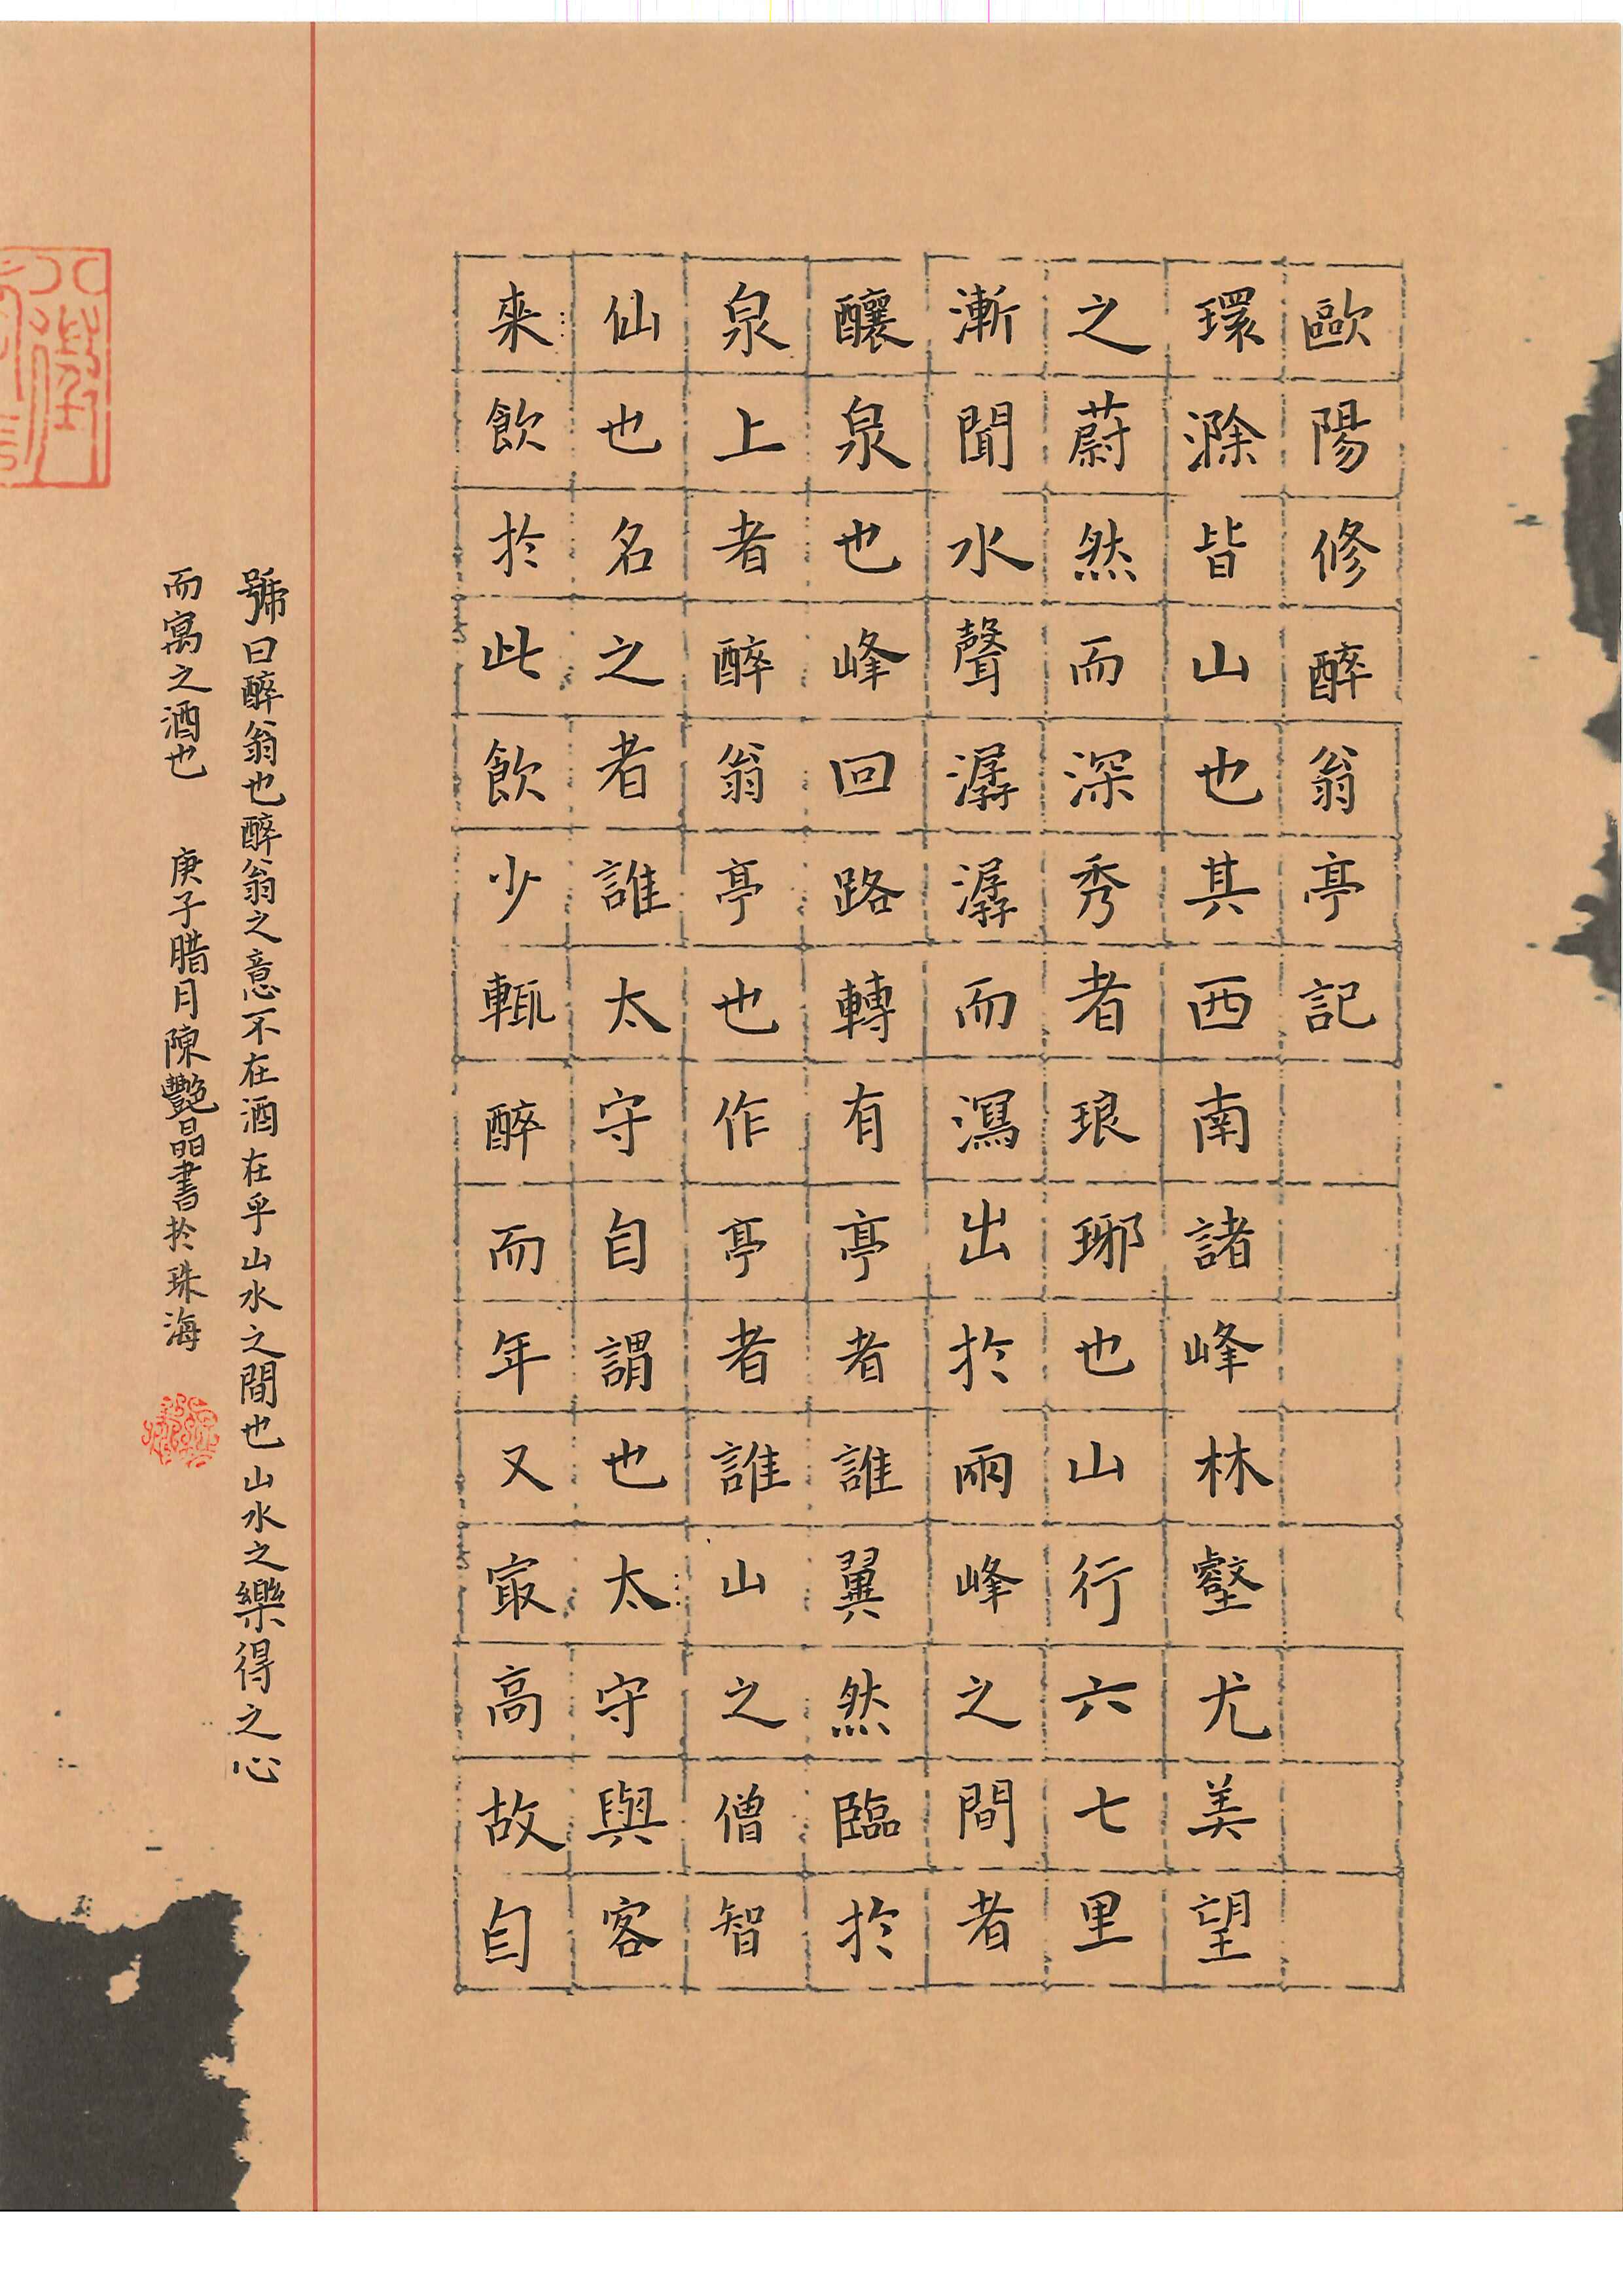 歐陽修醉翁亭記
環滁皆山也其西南諸峰林壑尤美望
之蔚然而深秀者琅琊也山行六七里
漸聞水聲潺潺而瀉出於兩峰之間者
釀泉也峰回路轉有亭者誰翼然臨於
泉上者醉翁亭也作亭者誰山之僧智
仙也名之者誰太守自謂也太守與客
來飲於此飲少輒醉而年又寂高故自
號曰醉翁也醉翁之意不在酒在乎山水之間也山水之樂得之心
而寓之酒也 庚子腊月陳艷晶書於珠海